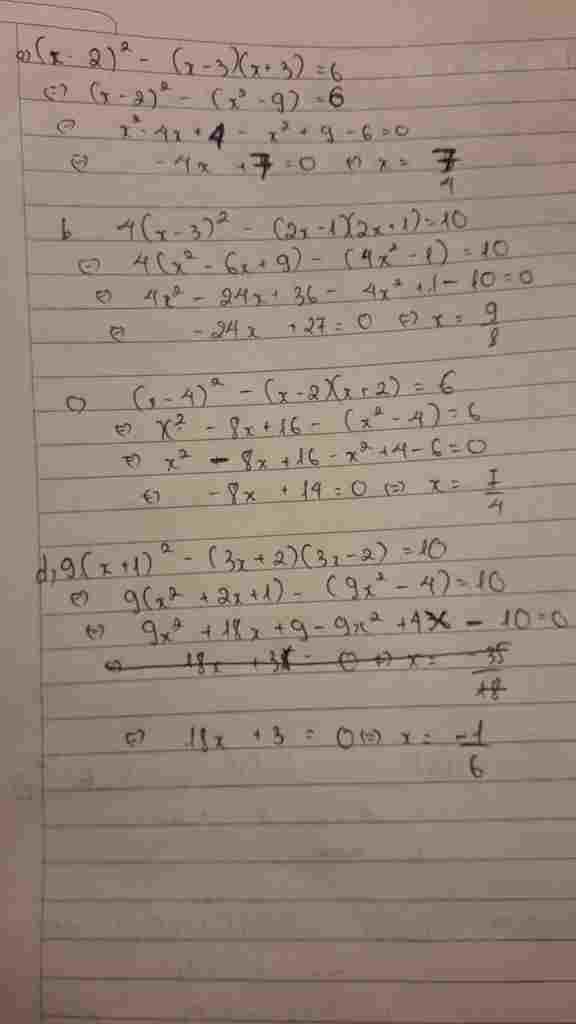 a) (x - 2)² - (x-3)(x+3) = 6
⇔ (x-2)² - (x² - 9) = 6
⇔ x² - 4x + 4 - x² + 9 - 6 = 0
⇔ - 4x + 7 = 0 ⇔ x = 7/4
b 4(x-3)² - (2x-1)(2x+1) = 10
⇔ 4(x² - 6x + 9) - (4x² - 1) = 10
⇔ 4x² - 24x + 36 - 4x² + 1 - 10 = 0
⇔ - 24x + 27 = 0 ⇔ x = 9/8
c) (x-4)² - (x-2)(x+2) = 6
⇔ x² - 8x + 16 - (x² - 4) = 6
⇔ x² - 8x + 16 - x² + 4 - 6 = 0
⇔ - 8x + 14 = 0 ⇔ x = 7/4
d, 9(x+1)² - (3x+2)(3x-2) = 10
⇔ 9(x² + 2x + 1) - (9x² - 4) = 10
⇔ 9x² + 18x + 9 - 9x² + 4 - 10 = 0
⇔ 18x + 3 = 0 ⇔ x = -1/6